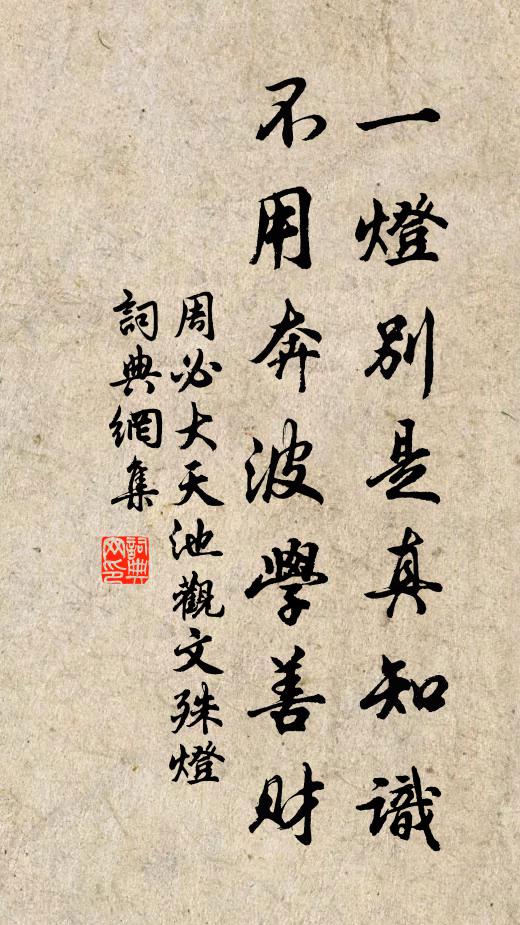 一燈別是真知識
不用奔波學善財
周必大天池觀文殊燈
詞典網集
詞典网印